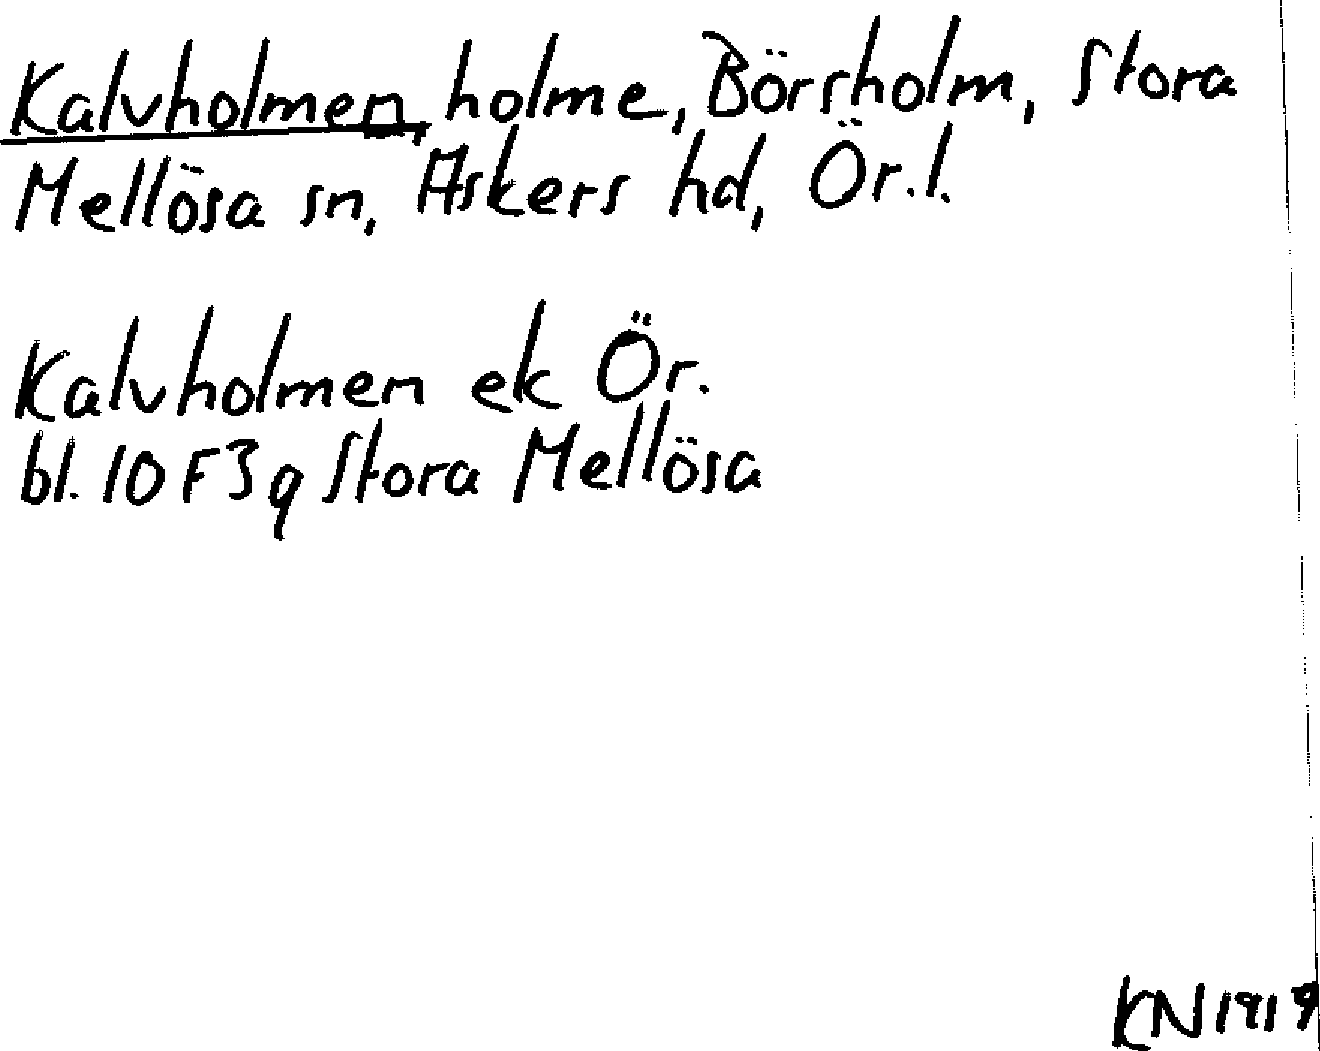 Kalvholmen, holme, Börsholm, Stora
Mellösa sn, Askers hd, Ör.l.
Kalvholmen ek Ör.
bl. 10 F 3 q Stora Mellösa
KN 1919